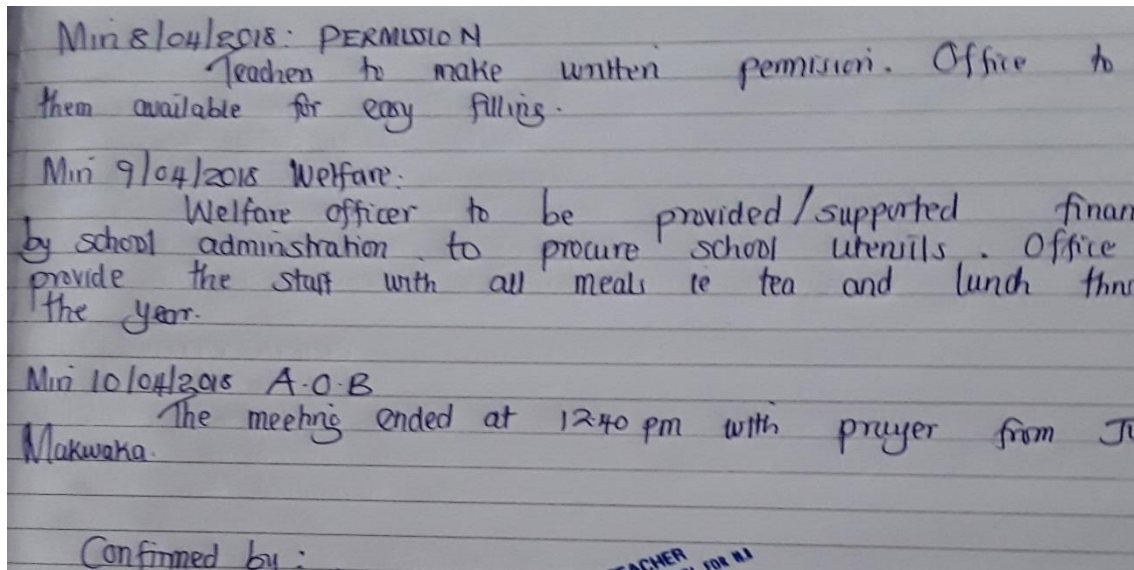 Min 8/04/2018: PERMISSION
Teachers to make written permission. Office to
them available for easy filling.
Min 9/04/2018 Welfare:
Welfare officer to be provided/supported finan
by school adminstration to procure school utensils. Office
provide the staff with all meals ie tea and lunch thro
the year.
Min 10/04/2018 A.O.B
The meeting ended at 12:40 pm with prayer from
Makwaka.
Confirmed by:
TEACHER
FOR